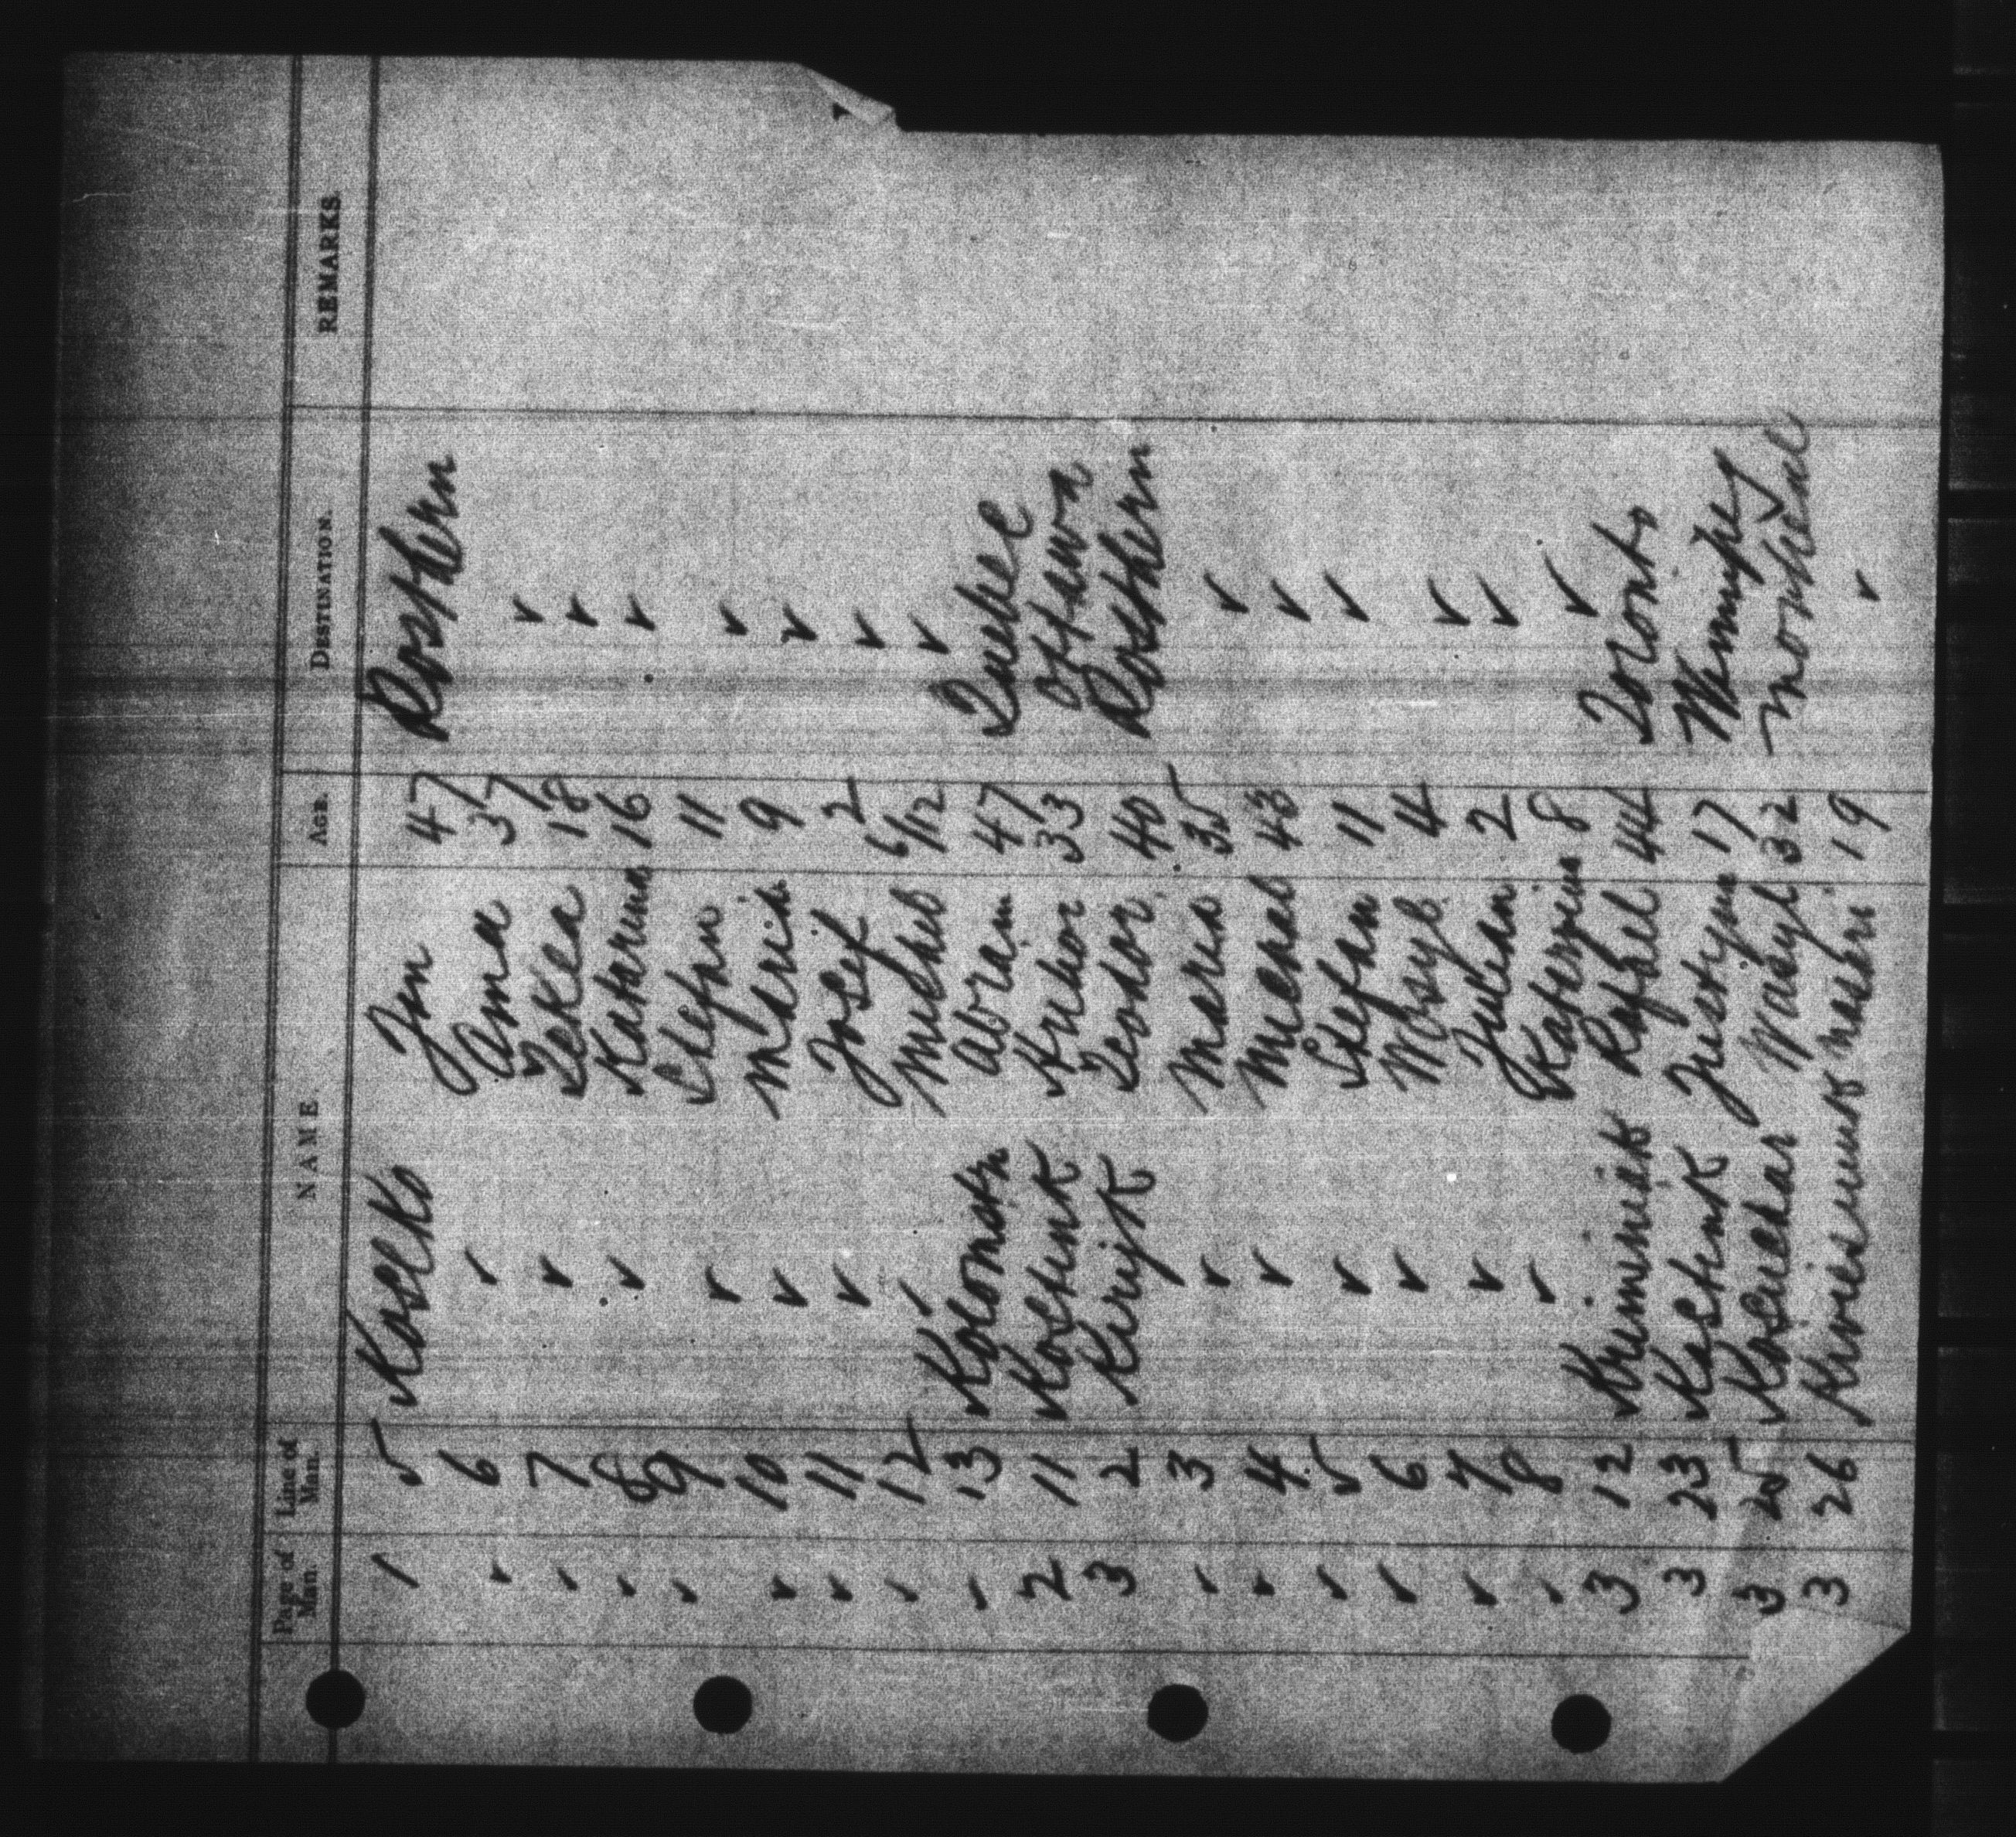 Page of Man. Line of Man. NAME. AGE. DESTINATION. REMARKS.
1 5 Koselko Jan 47 Rosthern
✓ 6 ✓ Anna 37 ✓
✓ 7 ✓ Tekla 18 ✓
✓ 8 ✓ Katarina 16 ✓
✓ 9 ✓ Stefan 11 ✓
✓ 10 ✓ Maria 9 ✓
✓ 11 ✓ Josef 2 ✓
✓ 12 ✓ Michal 6/12 ✓
✓ 13 Abram 47 Quebec
2 11 Kostiuk 33 Ottawa
3 2 Kirijk Teodor 40 Rosthern
✓ 3 ✓ Maria 35 ✓
✓ 4 ✓ Michal 43 ✓
✓ 5 ✓ Stefan 11 ✓
✓ 6 ✓ Wasyl 4 ✓
✓ 7 ✓ Julian 2 ✓
✓ 8 ✓ 8 ✓
3 12 Kriminiak Rafael 44 Toronto
3 23 Kostiuk Justyn 17 Winnipeg
3 25 Wasyl 32 Montreal
3 26 19 ✓